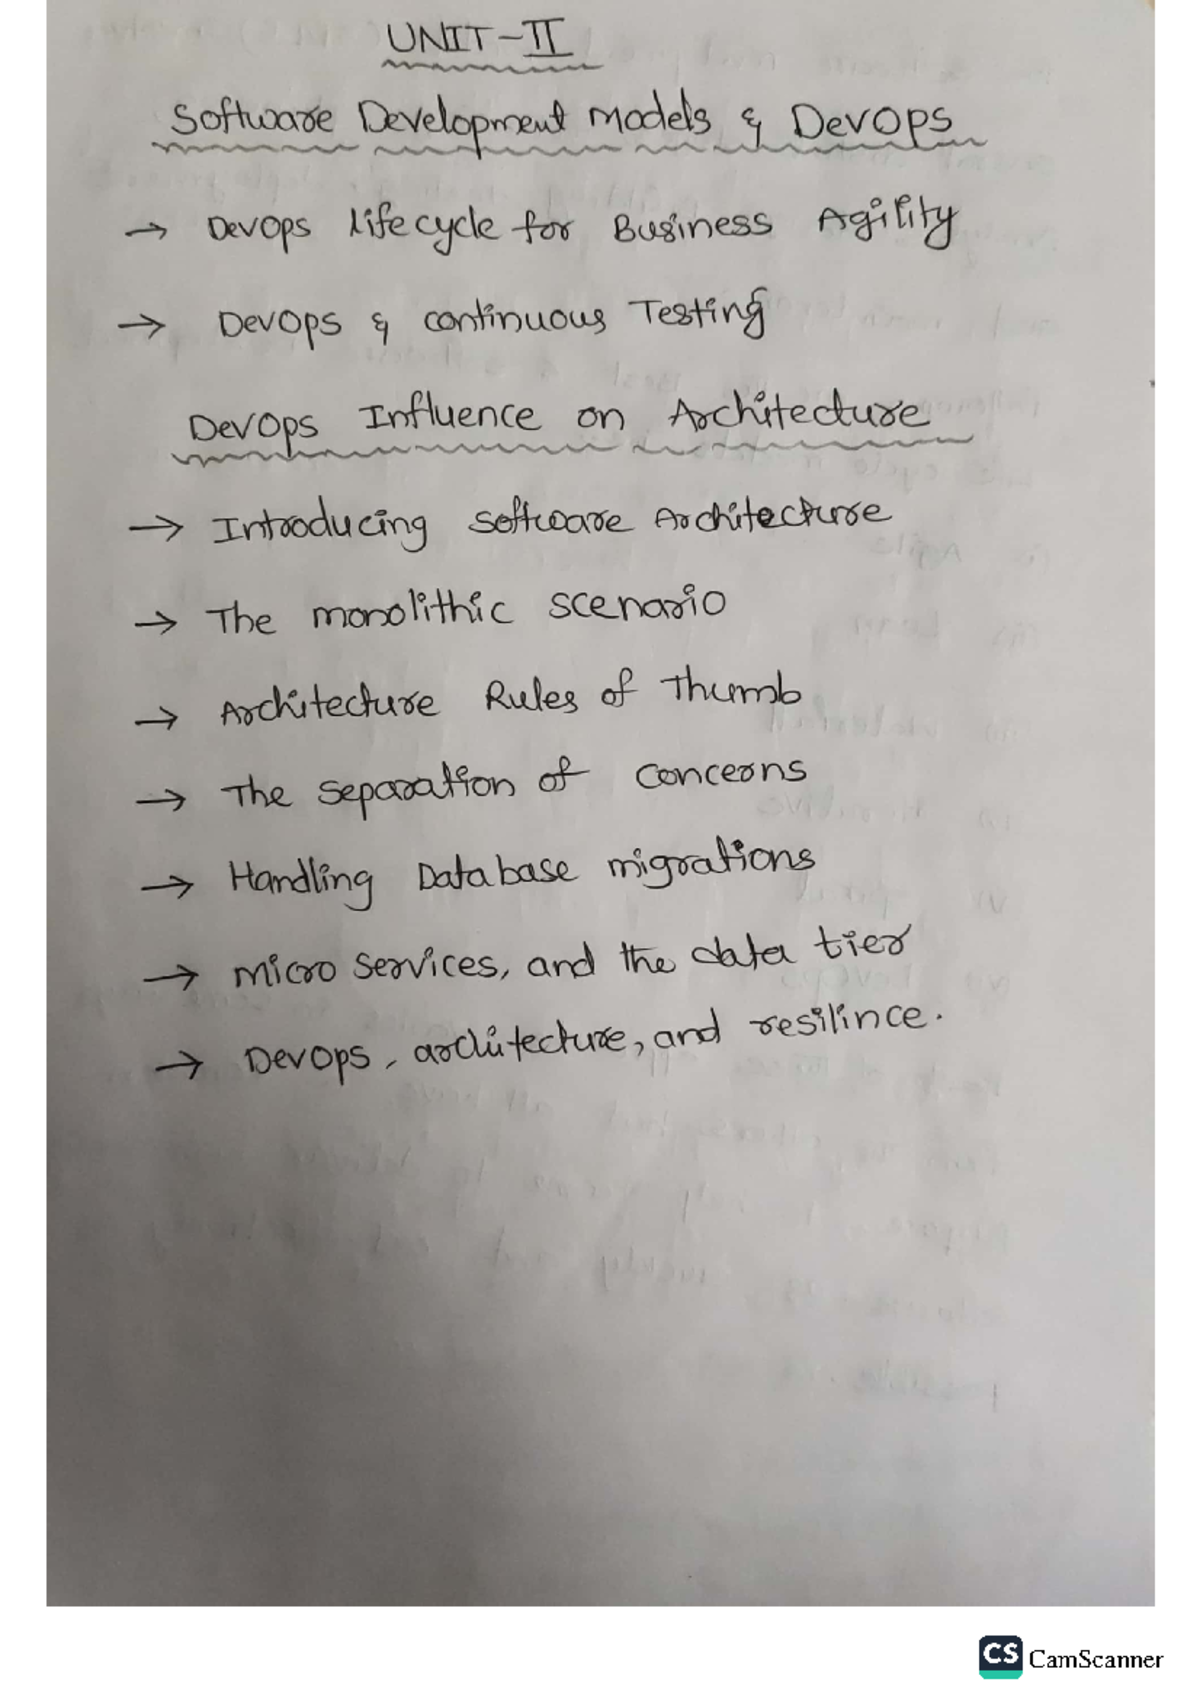 UNIT-II
Software Development Models & DevOps
→ DevOps lifecycle for Business Agility
→ DevOps & continuous Testing
DevOps Influence on Architecture
→ Introducing software Architecture
→ The monolithic scenario
→ Architecture Rules of Thumb
→ The separation of concerns
→ Handling Database migrations
→ Micro services, and the data tier
→ Devops, architecture, and resilince.
CS CamScanner